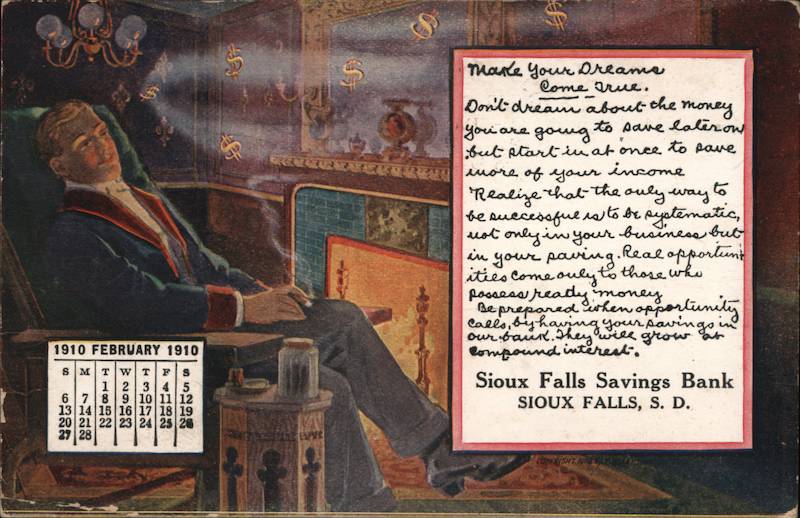 Make Your Dreams
Come True.
Don't dream about the money
you are going to save later on
but start in at once to save
more of your income
Realize that the only way to
be successful is to be systematic,
not only in your business but
in your saving. Real opportun
ities come only to those who
possess ready money
Be prepared when opportunity
calls, by having your savings in
our bank. They will grow at
compound interest.
Sioux Falls Savings Bank
SIOUX FALLS, S. D.
1910 FEBRUARY 1910
S M T W T F S
1 2 3 4 5
6 7 8 9 10 11 12
13 14 15 16 17 18 19
20 21 22 23 24 25 26
27 28
$ $ $ $ $ $